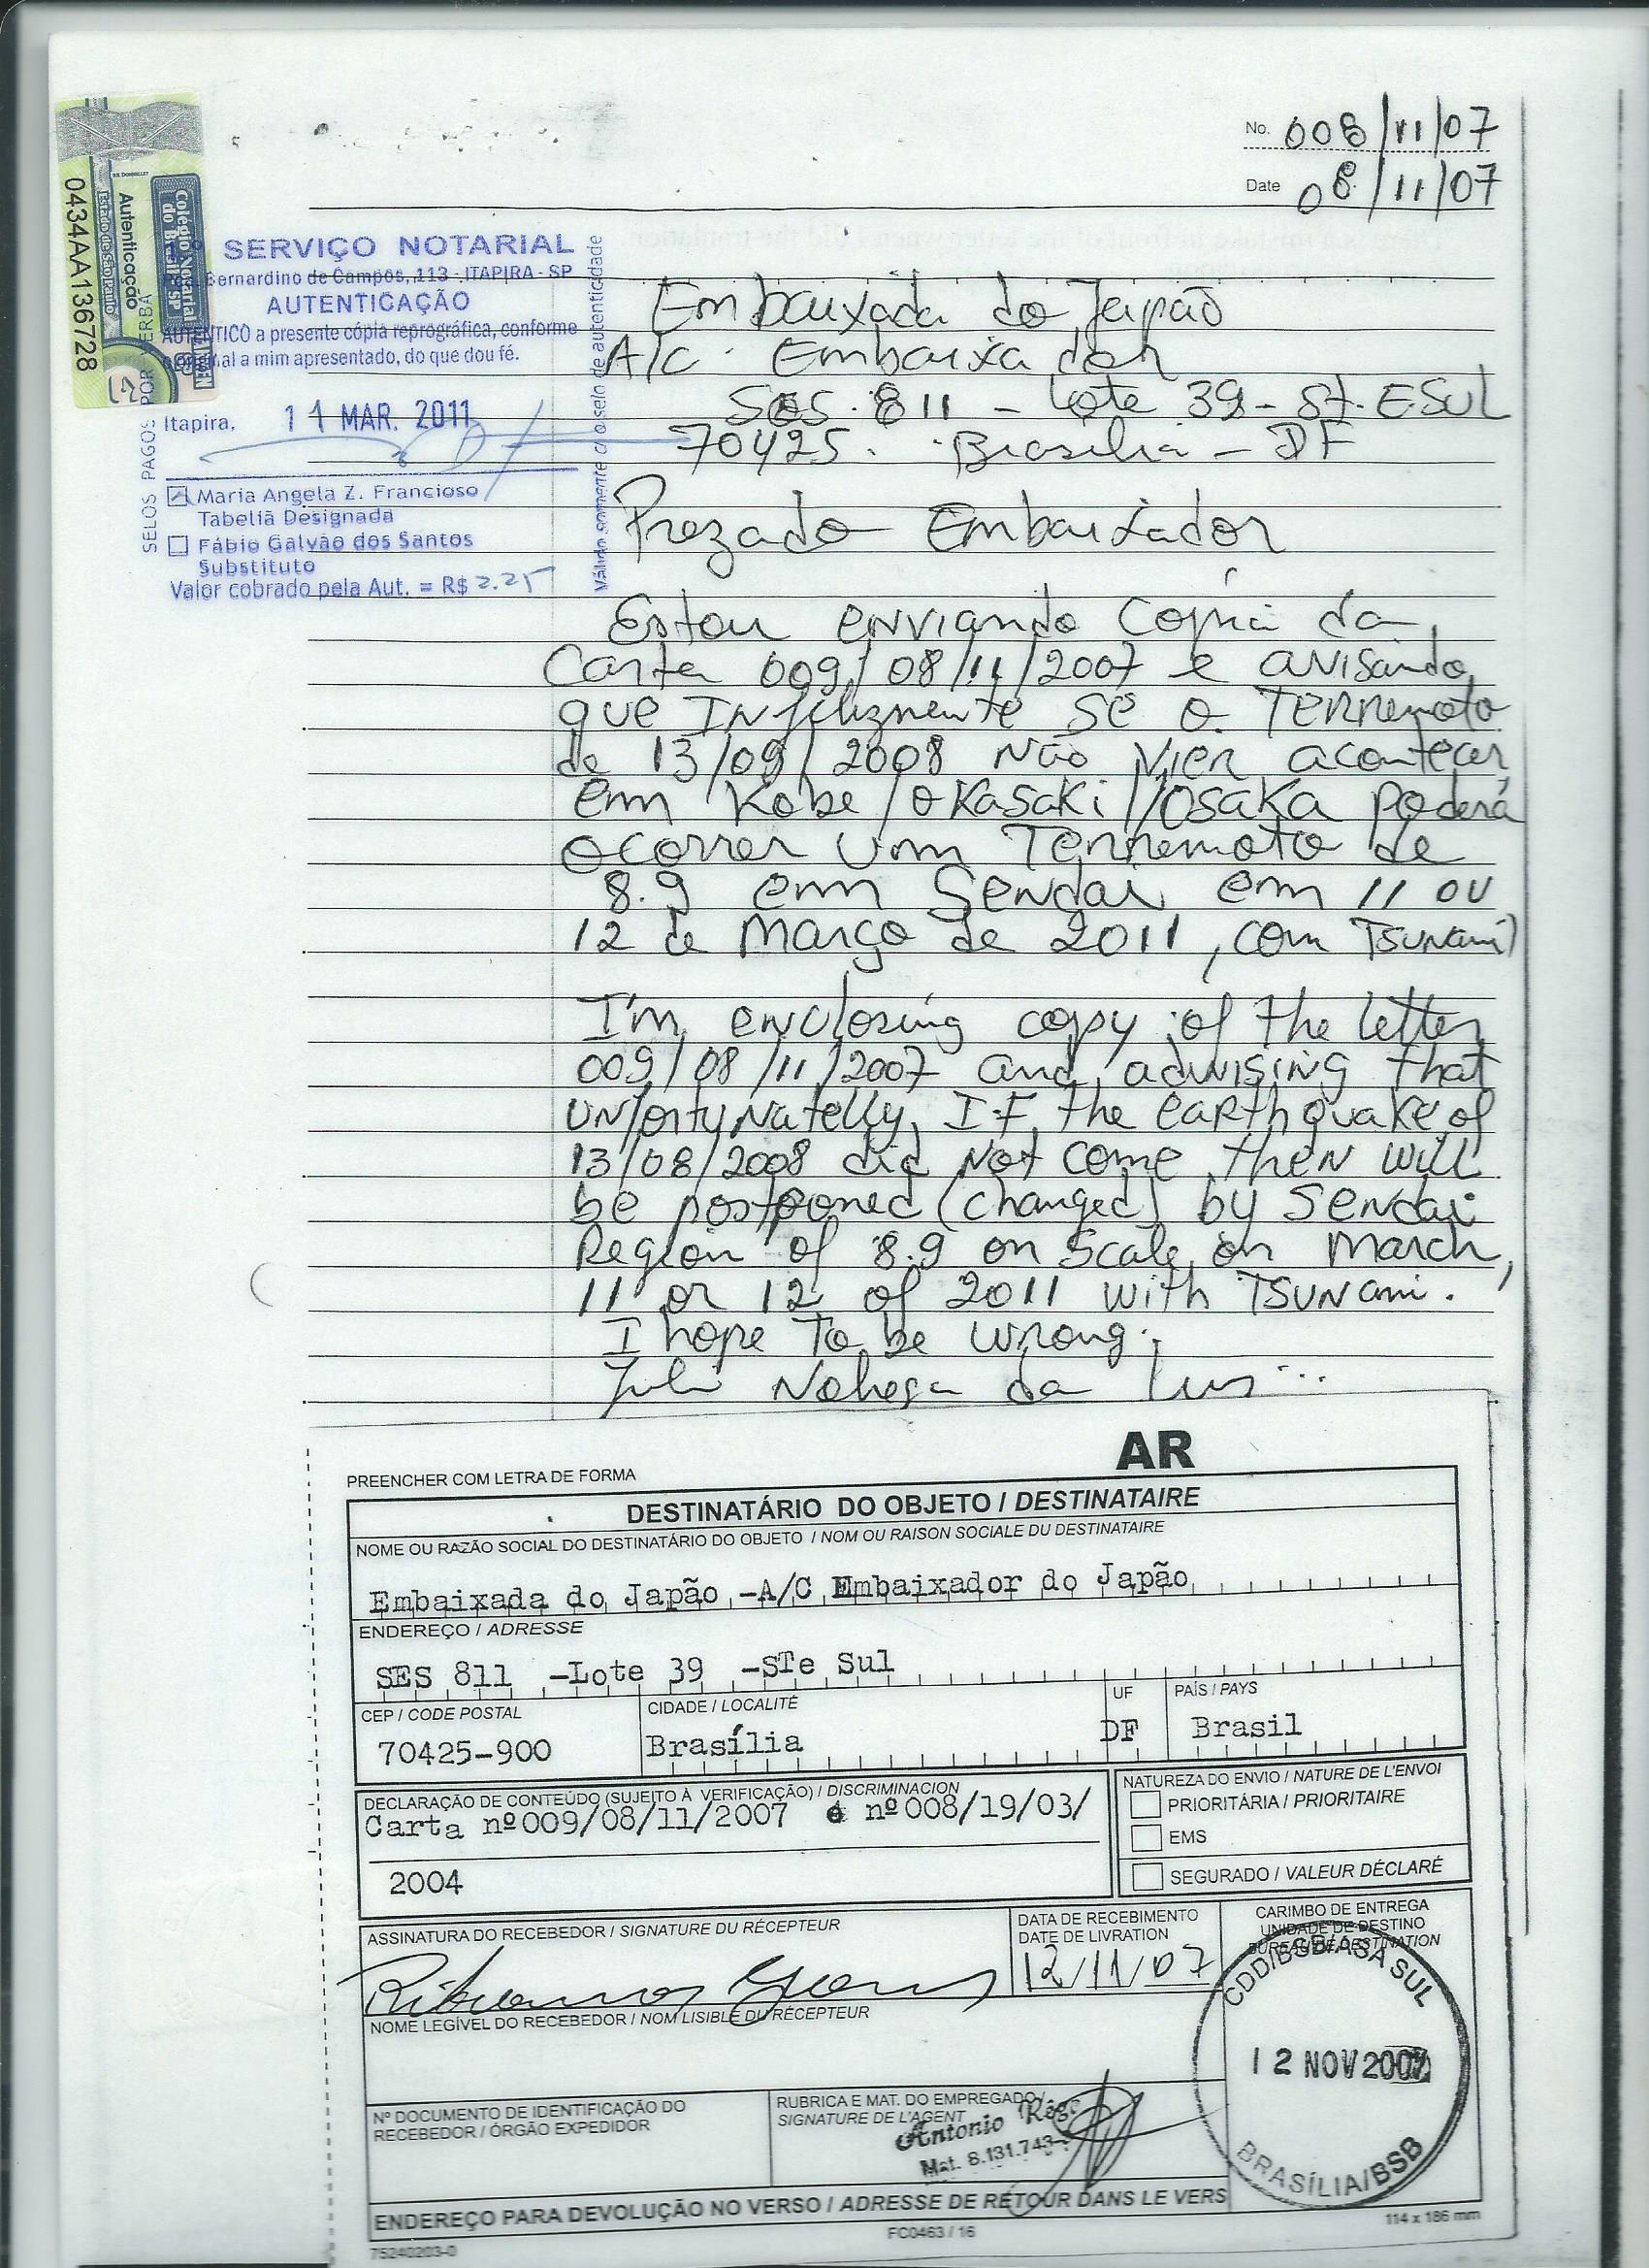 No. 008/11/07
Date 08/11/07
Colégio Notarial
do Brasil SP
Autenticação
Estado de São Paulo
0434AA136728
SERVIÇO NOTARIAL
Bernardino de Campos, 113 - ITAPIRA - SP
AUTENTICAÇÃO
AUTENTICO a presente cópia reprográfica, conforme
original a mim apresentado, do que dou fé.
Itapira, 11 MAR. 2011
SELOS PAGOS POR VERBA
Válido somente c/ o selo de autenticidade
Maria Angela Z. Francioso
Tabeliã Designada
Fábio Galvão dos Santos
Substituto
Valor cobrado pela Aut. = R$ 2.25
Embaixada do Japão
A/C. Embaixador
SES. 811 - Lote 39 - St. E.SUL
70425. Brasilia - DF
Prezado Embaixador
Estou enviando copia da
Carta 009/08/11/2007 e avisando
que Infelizmente se o Terremoto
de 13/09/2008 não vier acontecer
em Kobe/okasaki//OSAKA poderá
ocorrer um Terremoto de
8.9 em Sendai em 11 ou
12 de março de 2011, com Tsunami)
I'm enclosing copy of the letter
009/08/11/2007 and advising that
unfortunatelly, IF the earthquake of
13/08/2008 did not come then will
be postponed (changed) by Sendai
Region of 8.9 on Scale on march,
11 or 12 of 2011 with TSUNami.
I hope to be wrong.
AR
PREENCHER COM LETRA DE FORMA
DESTINATÁRIO DO OBJETO / DESTINATAIRE
NOME OU RAZÃO SOCIAL DO DESTINATÁRIO DO OBJETO / NOM OU RAISON SOCIALE DU DESTINATAIRE
Embaixada do Japão -A/C Embaixador do Japão
ENDEREÇO / ADRESSE
SES 811 -Lote 39 -STe Sul
CEP / CODE POSTAL CIDADE / LOCALITÉ UF PAÍS / PAYS
70425-900 Brasília DF Brasil
DECLARAÇÃO DE CONTEÚDO (SUJEITO À VERIFICAÇÃO) / DISCRIMINACION
Carta nº009/08/11/2007 é nº008/19/03/
2004
NATUREZA DO ENVIO / NATURE DE L'ENVOI
PRIORITÁRIA / PRIORITAIRE
EMS
SEGURADO / VALEUR DÉCLARÉ
ASSINATURA DO RECEBEDOR / SIGNATURE DU RÉCEPTEUR
DATA DE RECEBIMENTO
DATE DE LIVRATION
12/11/07
CARIMBO DE ENTREGA
UNIDADE DE DESTINO
BUREAU DE DESTINATION
CDD/BSB/ASA SUL
12 NOV 2007
BRASÍLIA/BSB
NOME LEGÍVEL DO RECEBEDOR / NOM LISIBLE DU RÉCEPTEUR
Nº DOCUMENTO DE IDENTIFICAÇÃO DO
RECEBEDOR / ÓRGÃO EXPEDIDOR
RUBRICA E MAT. DO EMPREGADO /
SIGNATURE DE L'AGENT
Antonio
Mat. 8.131.743-
ENDEREÇO PARA DEVOLUÇÃO NO VERSO / ADRESSE DE RETOUR DANS LE VERS
75240203-0 FC0463 / 16 114 x 186 mm